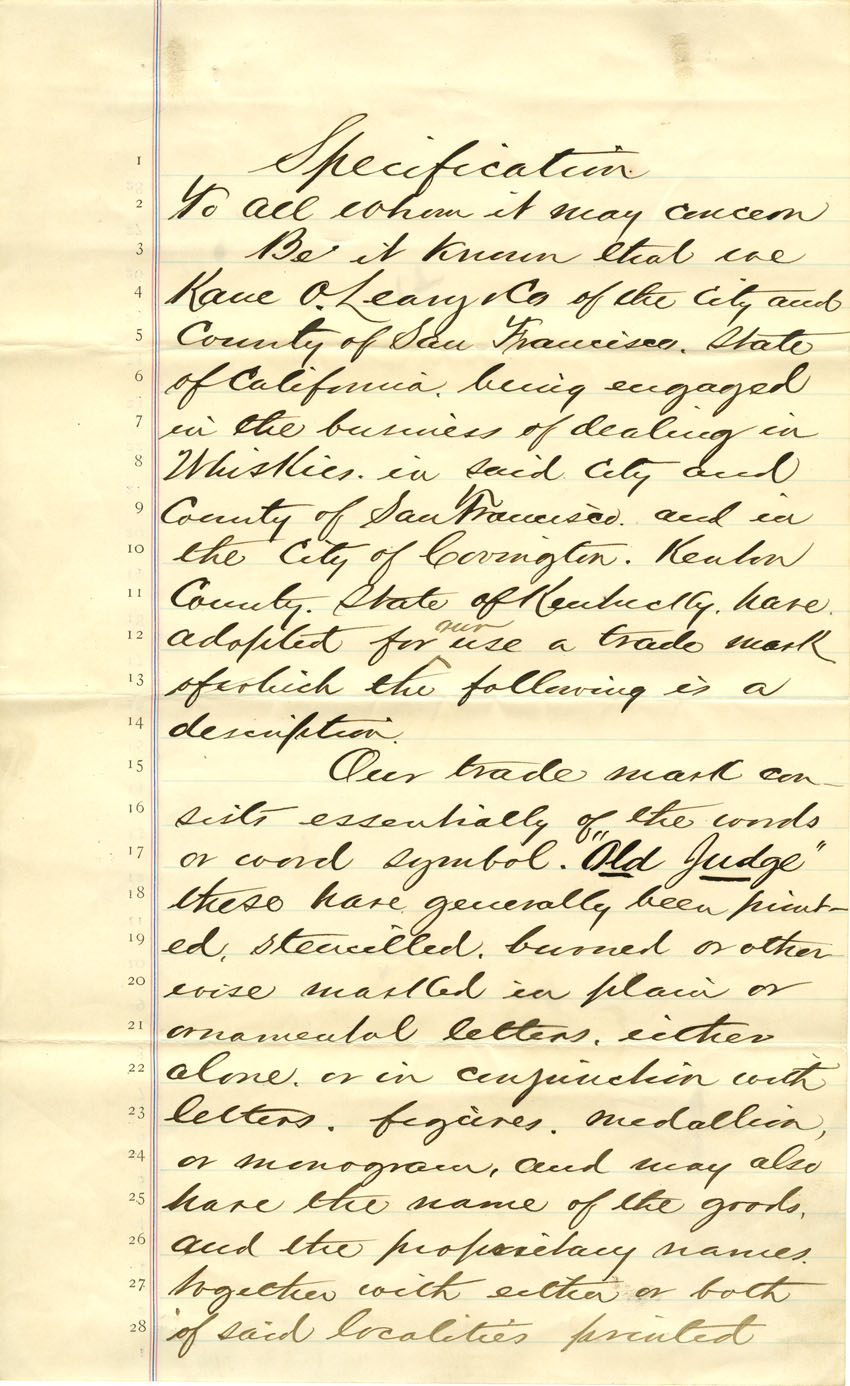 1 Specification
2 To all whom it may concern
3 Be it known that we
4 Kane O.Leary & Co of the City and
5 County of San Francisco. State
6 of California. being engaged
7 in the business of dealing in
8 Whiskies. in said City and
9 County of San Francisco. and in
10 the City of Covington. Kenton
11 County. State of Kentucky. have
our
12 adopted for use a trade mark
13 of which the following is a
14 description.
15 Our trade mark con-
16 sists essentially of the words
17 or word symbol. "Old Judge"
18 these have generally been print-
19 ed, stencilled. burned or other
20 wise marked in plain or
21 ornamental letters. either
22 alone. or in conjunction with
23 letters. figures. medallion,
24 or monogram, and may also
25 have the name of the goods,
26 and the proprietary names.
27 together with either or both
28 of said localities printed